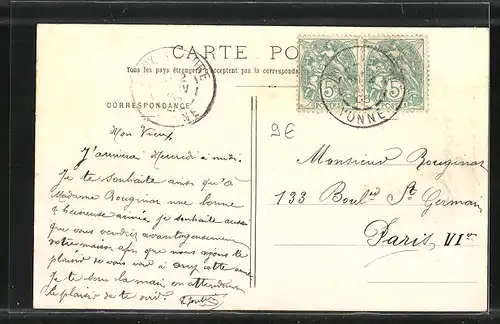 CARTE PO
Tous les pays étrangers n'acceptent pas la correspondance
CORRESPONDANCE
5c 5c
POSTES POSTES
YONNE
9€
Mon Vieux
J'arriverai Mercredi à midi.
Je te souhaite ainsi qu'à
Madame Rouginat une bonne
& heureuse année, je souhaite aussi
que vous vendiez avantageusement
votre maison afin que nous ayons le
plaisir de vous voir à cette année
Je te serre la main en attendant
le plaisir de te voir.
Monsieur Rouginat
133 Boul^d St
Germain
Paris VI^e